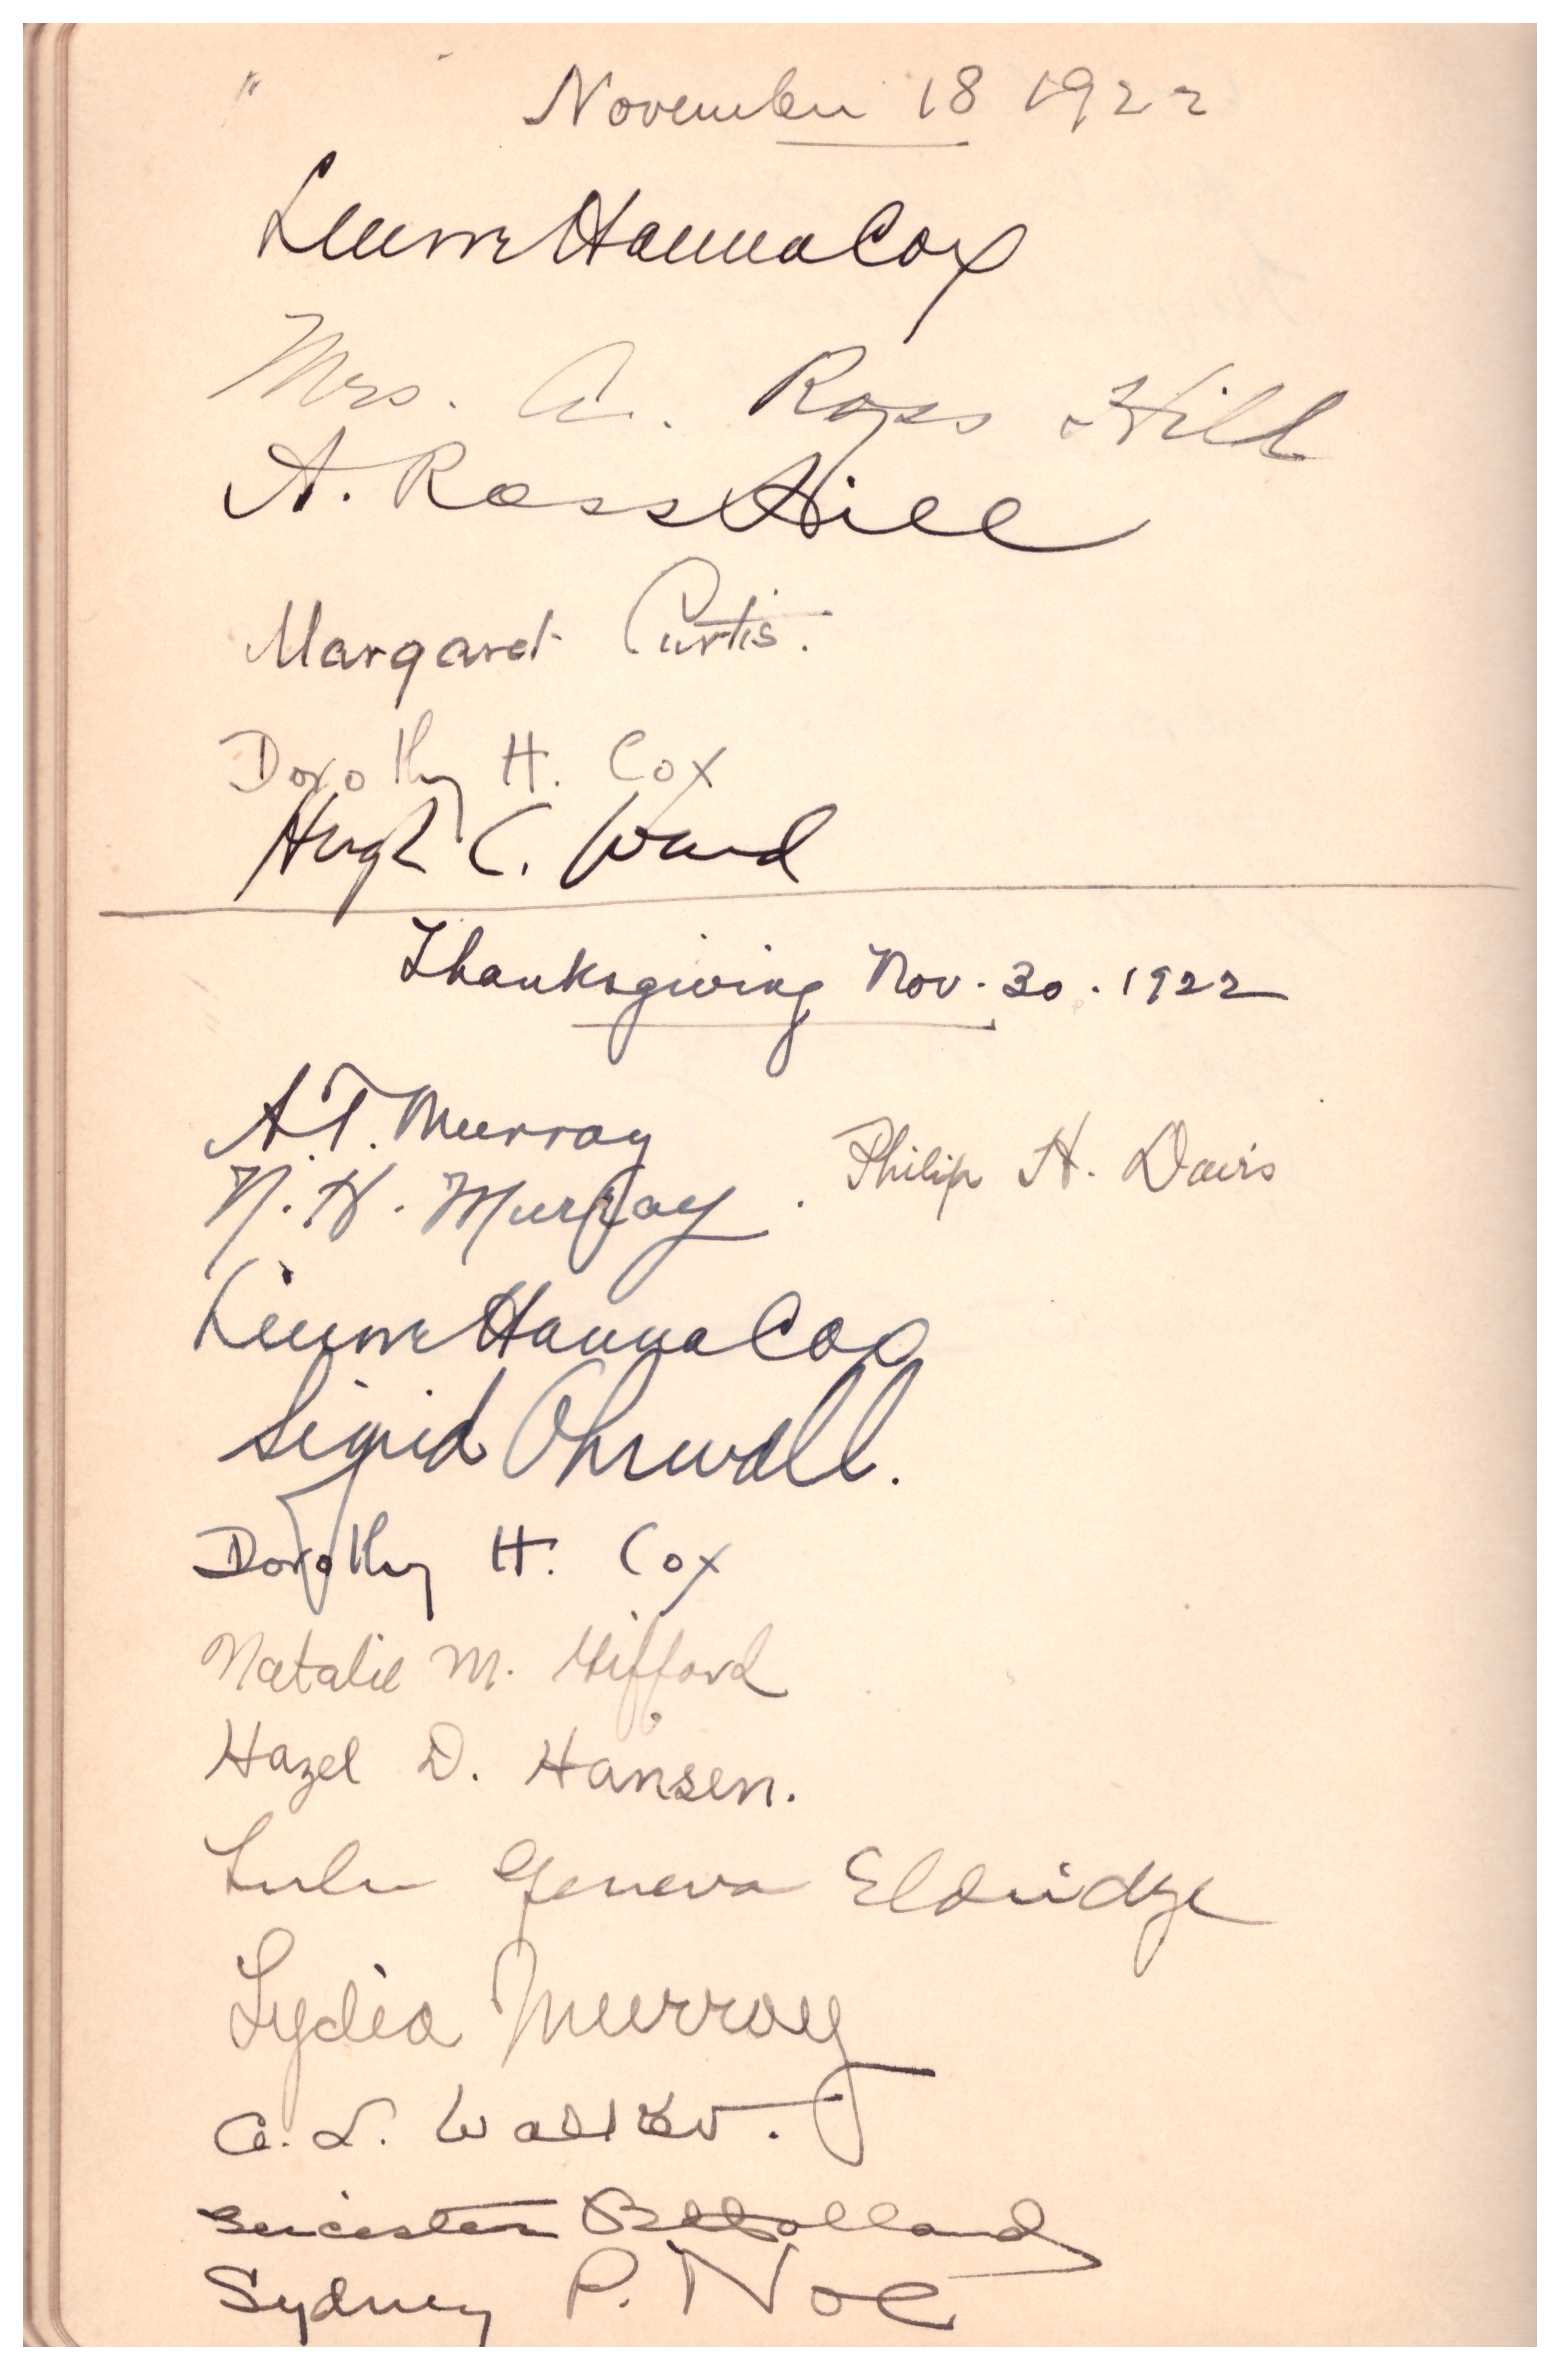 " November 18 1922
Hanna Cox
Mrs. A. Ross Hill
A. Ross Hill
Margaret Curtis.
Dorothy H. Cox
Hugh C. Ward
Thanksgiving Nov. 30. 1922
A.T. Murray
Philip H. Davis
N. H. Murray
Hanna Cox
Sigrid Ohrwall.
Dorothy H. Cox
Natalie M. Gifford
Hazel D. Hansen.
Lulu Geneva Eldridge
Lydia Murray
A. L. Walker.
Leicester B. Holland
Sydney P. Noe